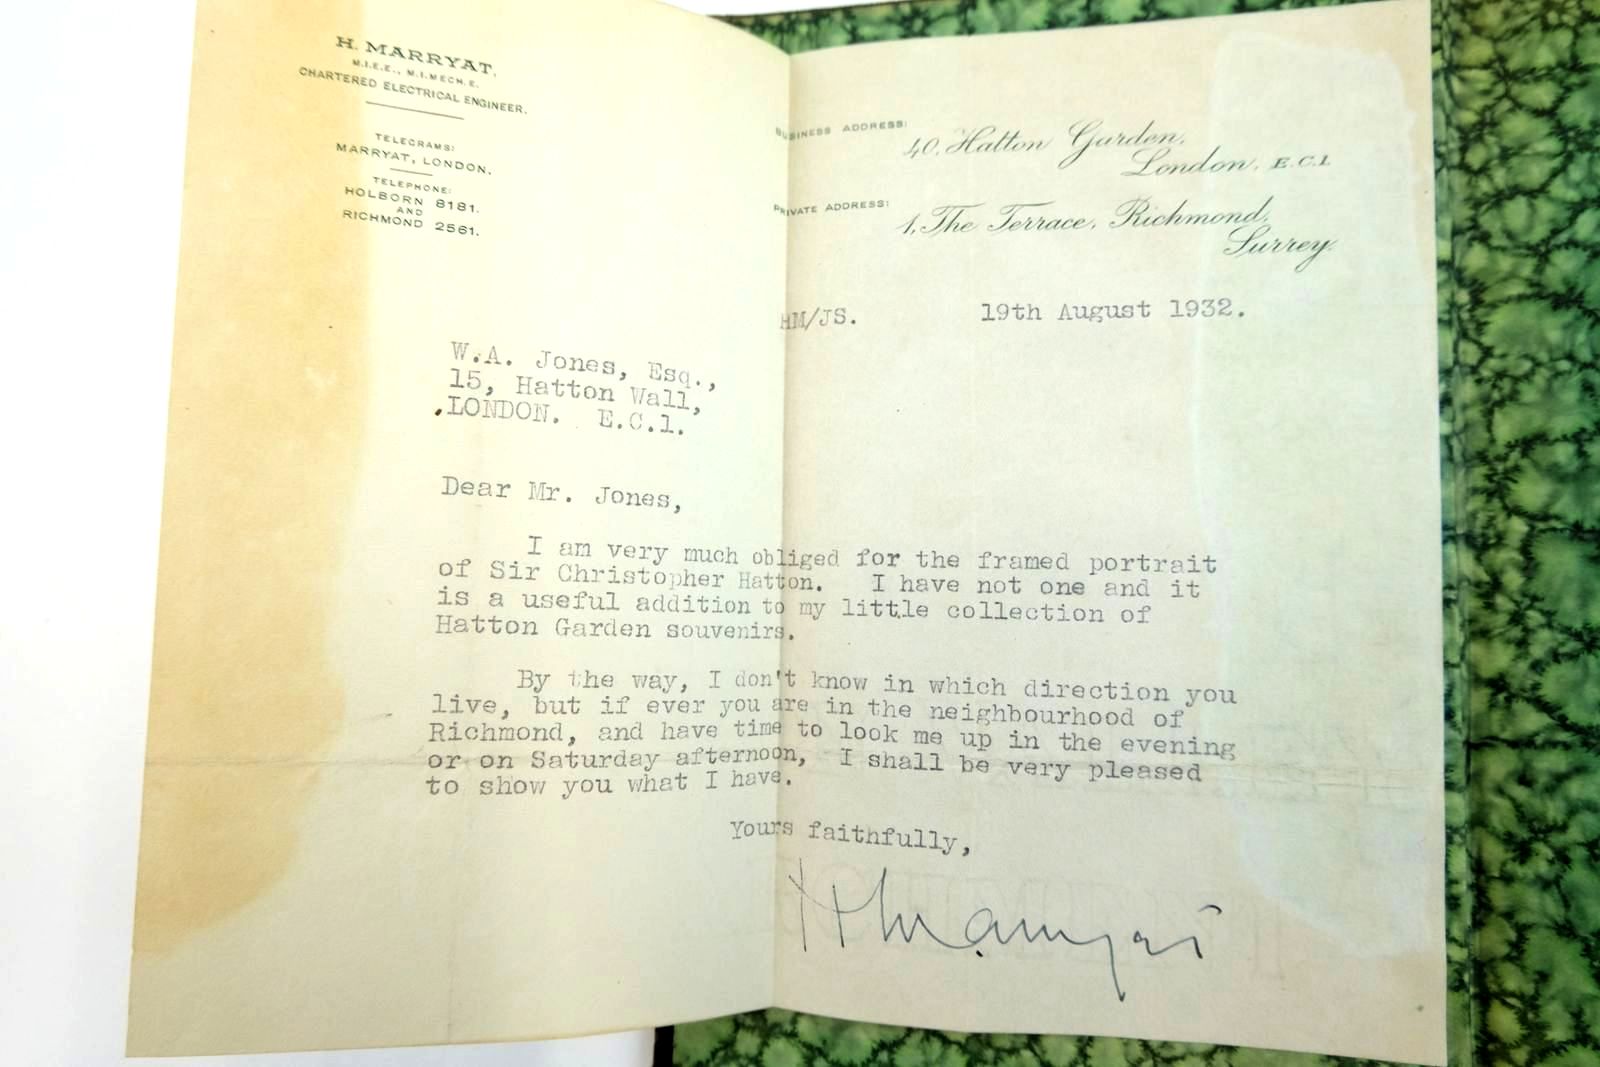 H. MARRYAT,
M.I.E.E., M.I.MECH.E.
CHARTERED ELECTRICAL ENGINEER.
TELEGRAMS:
MARRYAT, LONDON.
TELEPHONE:
HOLBORN 8181.
AND
RICHMOND 2561.
BUSINESS ADDRESS:
40, Hatton Garden,
London, E.C.1
PRIVATE ADDRESS:
1, The Terrace, Richmond,
Surrey.
HM/JS. 19th August 1932.
W.A. Jones, Esq.,
15, Hatton Wall,
LONDON. E.C.1.
Dear Mr. Jones,
I am very much obliged for the framed portrait
of Sir Christopher Hatton. I have not one and it
is a useful addition to my little collection of
Hatton Garden souvenirs.
By the way, I don't know in which direction you
live, but if ever you are in the neighbourhood of
Richmond, and have time to look me up in the evening
or on Saturday afternoon, I shall be very pleased
to show you what I have.
Yours faithfully,
H Marryat